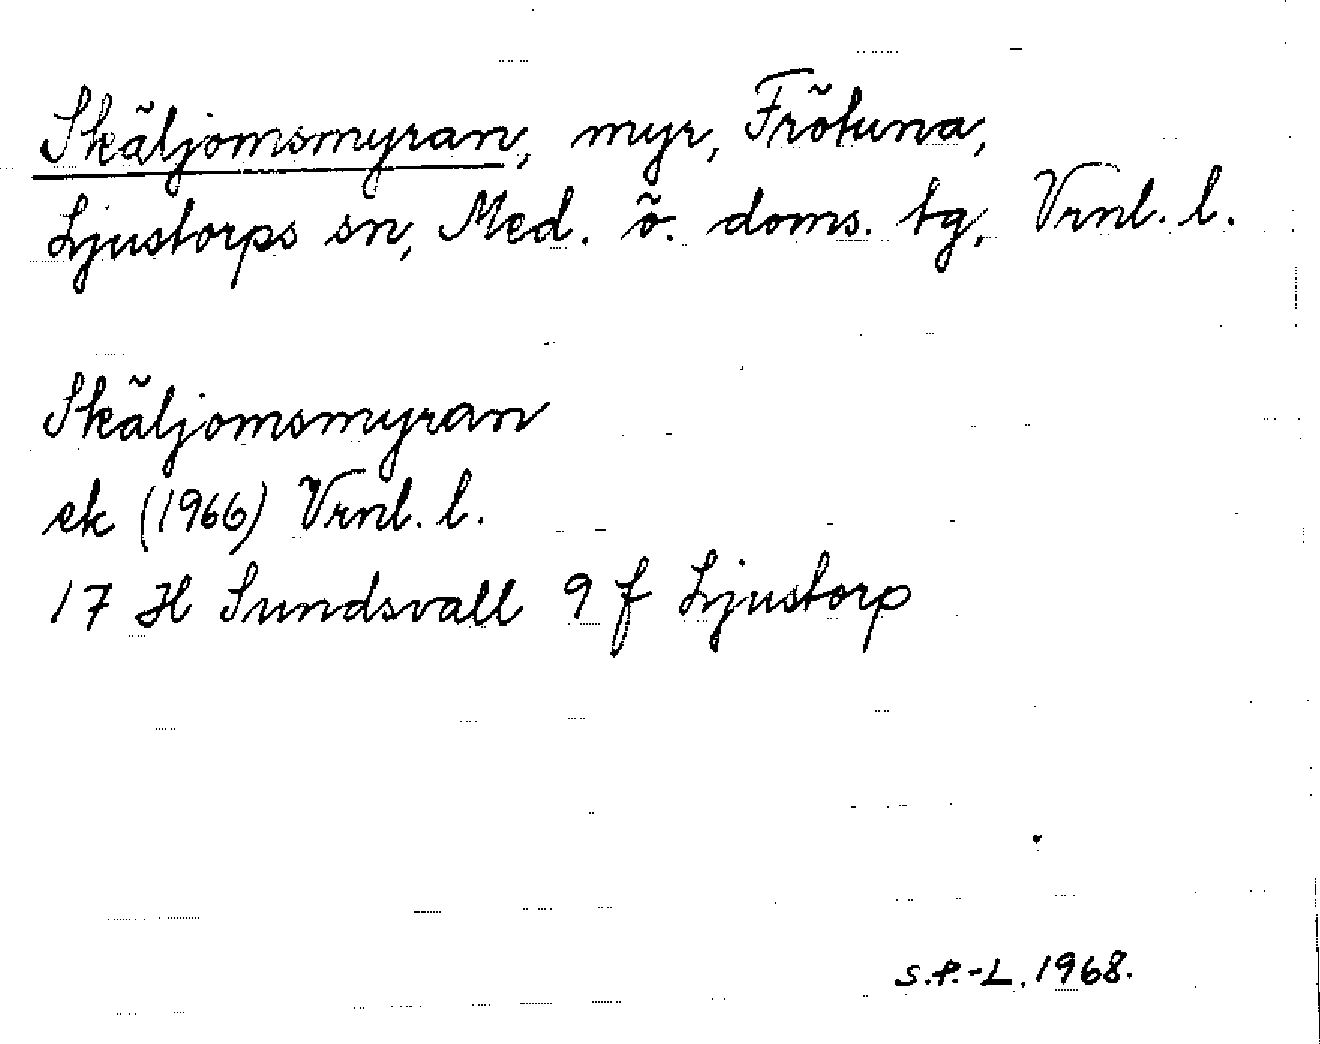 Skäljomsmyran, myr, Frötuna,
Ljustorps sn, Med. ö. doms. tg, Vrnl. l.
Skäljomsmyran
ek (1966) Vrnl. l.
17 H Sundsvall 9 f Ljustorp
S.P.-L. 1968.